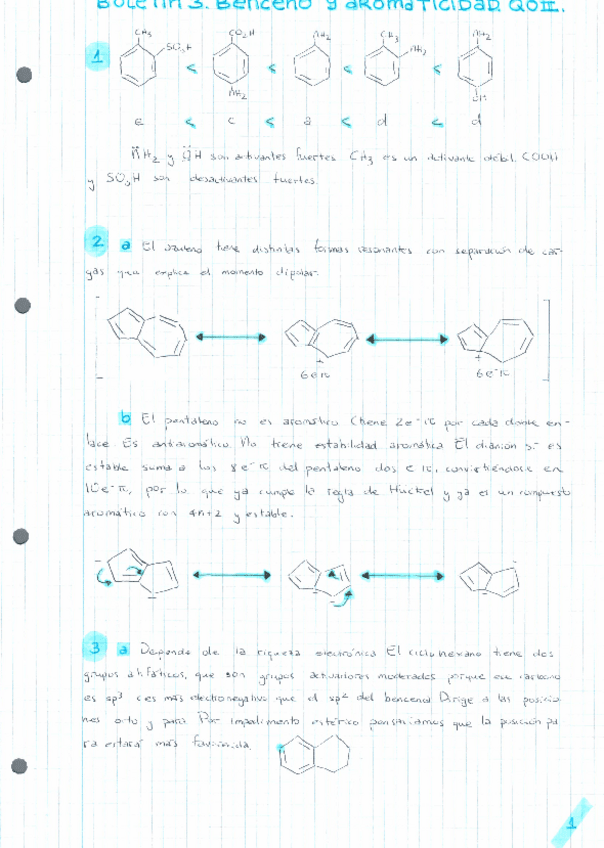 Boletín 3. Benceno y aromaticidad QOII.
1
CH3 SO3H CO2H NH2 CH3 NH2 NH2
< < < <
NH2 OH
e < c < a < d < d
N̈H2 y ÖH son activantes fuertes CH3 es un activante débil. COOH
y SO3H son desactivantes fuertes.
2 a El azuleno tiene distintas formas resonantes con separación de car-
gas que explica el momento dipolar.
+ +
6 e⁻π 6 e⁻π
b El pentaleno no es aromático (tiene 2e⁻π por cada doble en-
lace. Es antiaromático. No tiene estabilidad aromática El dianión sí es
estable suma a los 8 e⁻π del pentaleno dos e⁻π, convirtiéndose en
10e⁻π, por lo que ya cumple la regla de Hückel y ya es un compuesto
aromático con 4n+2 y estable.
3 a Depende de la riqueza electrónica El ciclohexano tiene dos
grupos alifáticos, que son grupos activadores moderados porque ese carbono
es sp³ es más electronegativo que el sp² del benceno Dirige a las posicio
nes orto y para Por impedimento estérico pensaríamos que la posición pa
ra estará más favorecida.
1